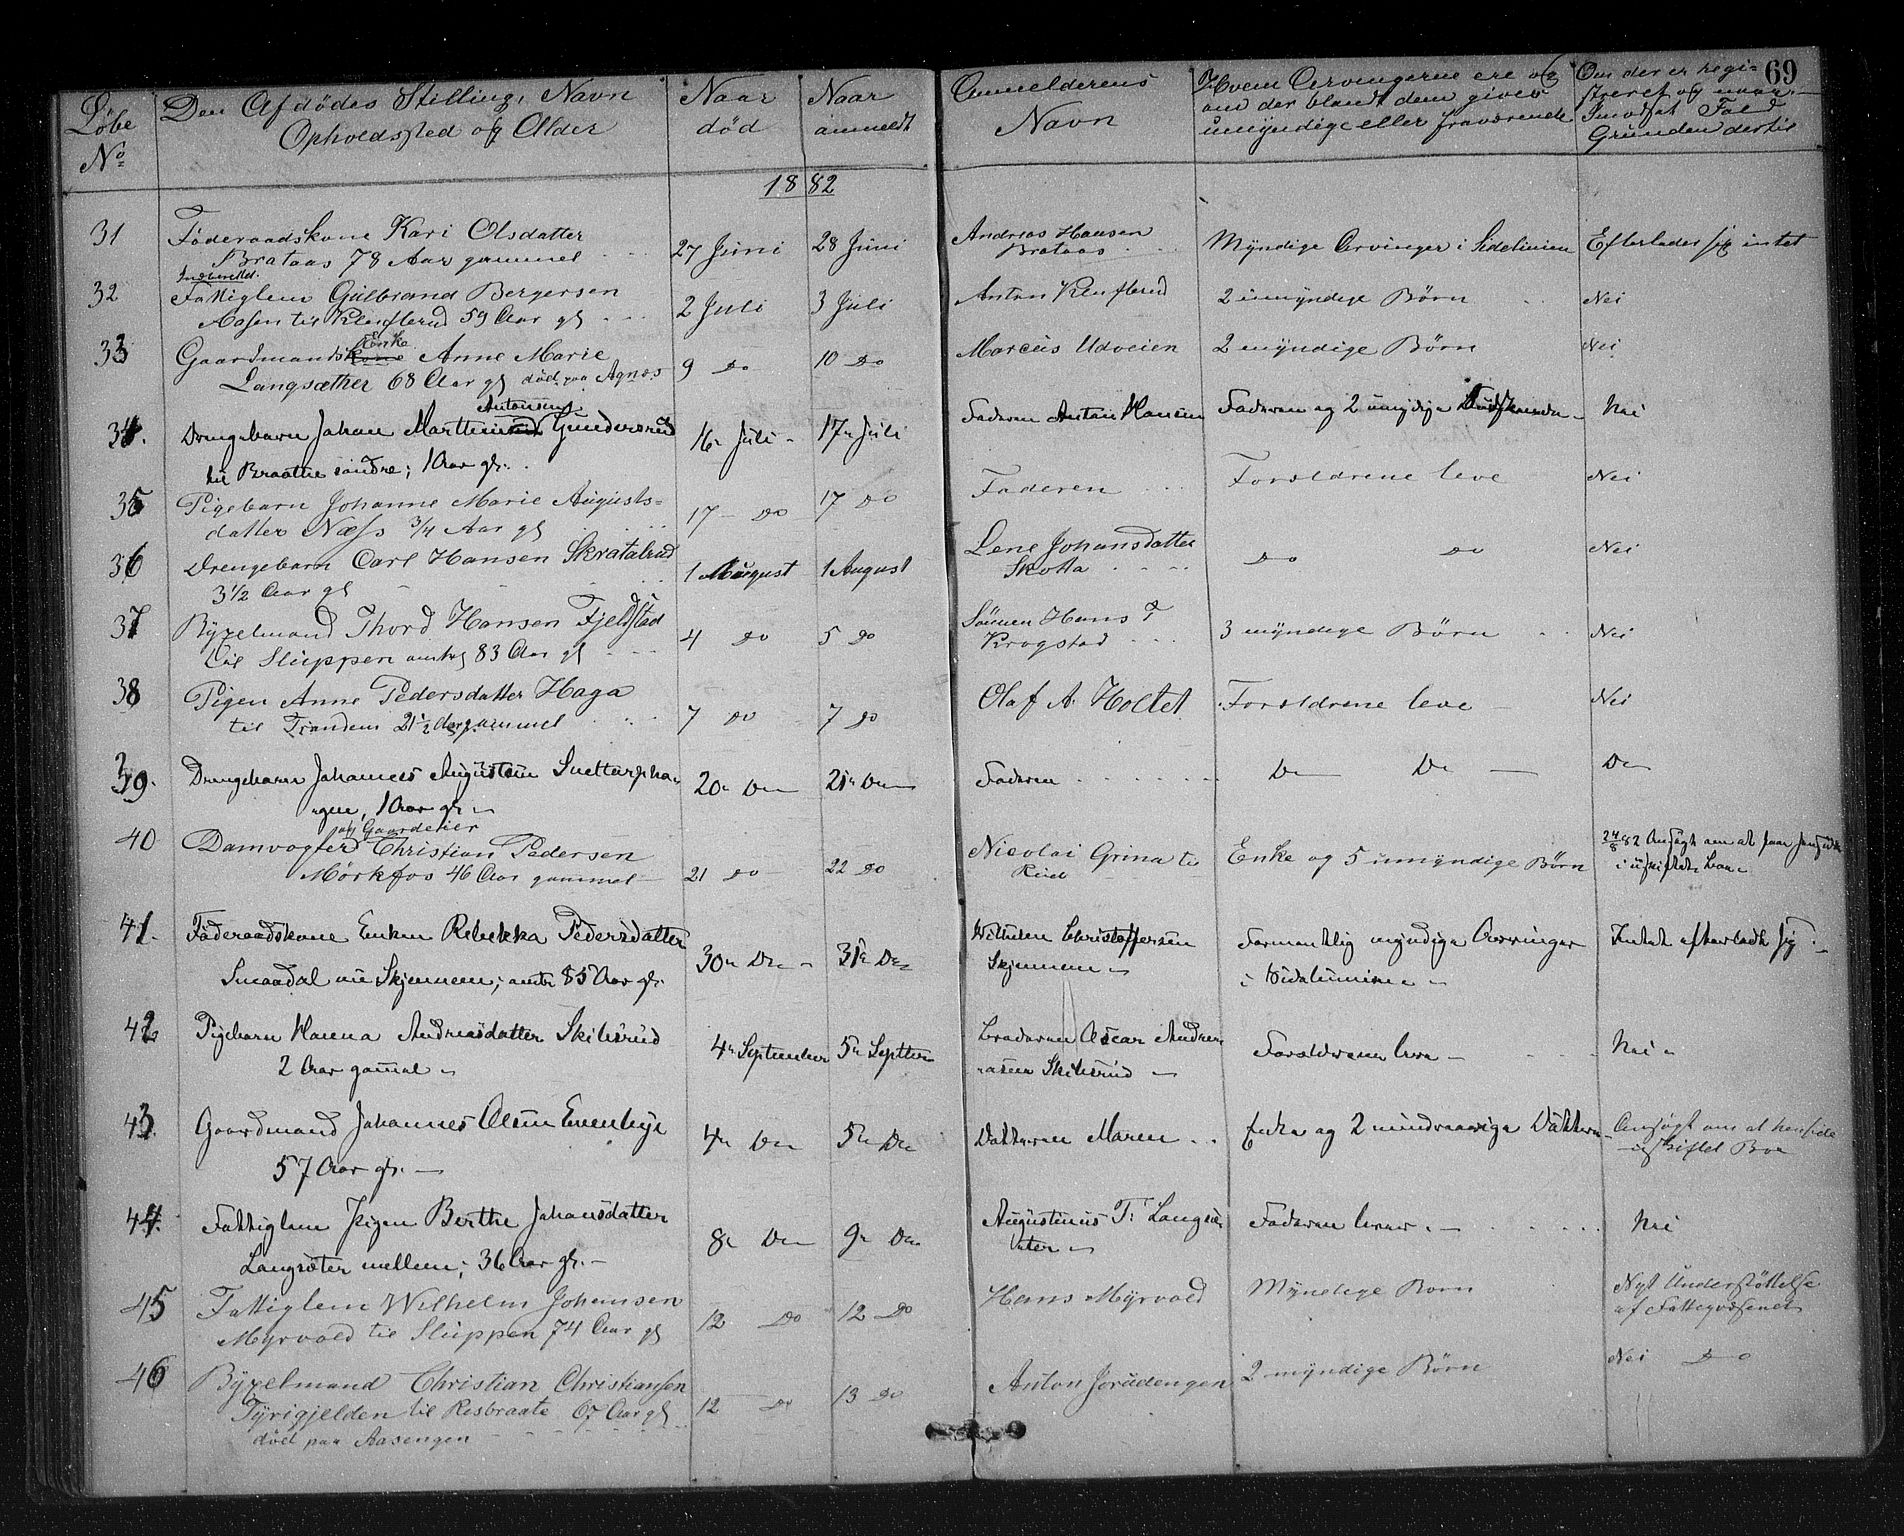 69
Løbe No
Den Afdødes Stilling, Navn
Opholdssted og Alder
Naar død
Naar anmeldt
Anmelderens Navn
Hvem Arvingerne ere og
om der blandt dem gives
umyndige eller fraværende
Om der er regi-
streret og naar.
I modsat Fald
Grunden dertil
1882
31 Føderaadskone Kari Olsdatter
Brataas 78 Aar gammel
27 Juni 28 Juni
Andreas Hansen
Brataas
Myndige Arvinger i Sidelinien
Efterlader sig intet
32 Fattiglem Gulbrand Bergersen
Aasen til Klufterud 59 Aar gl
2 Juli 3 Juli
Anton Klufterud
2 umyndige Børn
Nei
33 Gaardmandsenke Anne Marie
Langsæther 68 Aar gl død paa Agnæs
9 Do 10 Do
Marcus Udveien
2 myndige Børn
Nei
Antonsen
34. Drengebarn Johan Marthin Gundersrud
til Braatte søndre; 1 Aar gl.
16 Juli 17 Juli
Faderen Anton Hansen
Faderen og 2 umyndige
Nei
35 Pigebarn Johanne Marie Augusts-
datter Næss 3/4 Aar gl
17 Do 17 Do
Faderen
Forældrene leve
Nei
36 Drengebarn Carl Hansen Skratalrud
3 1/2 Aar gl
1 August 1 August
Lene Johansdatter
Skotta
Do Do
Nei
37 Bygselmand Thord Hansen Fjeldstad
til Sluppen 83 Aar gl
4 Do 5 Do
Sønnen Hans T
Krogstad
3 myndige Børn
Nei
38 Pigen Anne Pedersdatter Haga
til Trandem 21 1/2 Aar gammel
7 Do 7 Do
Olaf A. Holtet
Forældrene leve
Nei
39. Drengebarn Johannes Augustsen Snettarpha-
gen, 1 Aar gl.
20 Do 21 Do
Faderen
Do Do
Do
og Gaardeier
40 Damvogter Christian Pedersen
Mørkfos 46 Aar gammel
21 Do 22 Do
Nicolai Grina til
Rud
Enke og 5 umyndige Børn
24/8 82 Ansøgt om at
i uskiftet
41. Føderaadskone Enken Rebekka Pedersdatter
Smaadal nu Skjennem; 85 Aar gl.
30 Do 31 Do
Wilhelm Christoffersen
Skjennem
Formentlig myndige Arvinger
i Sidelinien
Intet efterladt sig
42 Pigebarn Hanna Andreasdatter Skilsrud
2 Aar gammel
4 September 5 Septbr
Broderen Oscar Andre-
asen Skilsrud
Forældrene leve
Nei
43. Gaardmand Johannes Olsen Evenbye
57 Aar gl.
4 Do 5 Do
Datteren Maren
Enke og 2 mindreaarige Døttre
Ansøgt om at hensidde
i uskiftet Boe
44. Fattiglem Pigen Berthe Johansdatter
Langsæter mellem; 36 Aar gl.
8 Do 9 Do
Augustinus T. Langsæ-
ter
Faderen lever
Nei
45 Fattiglem Wilhelm Johansen
Myrvold til Sluppen 74 Aar gl
12 Do 12 Do
Hans Myrvold
Myndige Børn
Nyt Understøttelse
af Fattigvæsenet
46 Bygselmand Christian Christiansen
Tyrigjelden til Risbraate 67 Aar gl
død paa Aasengen
12 Do 13 Do
Anton Jorudengen
2 myndige Børn
Nei Do